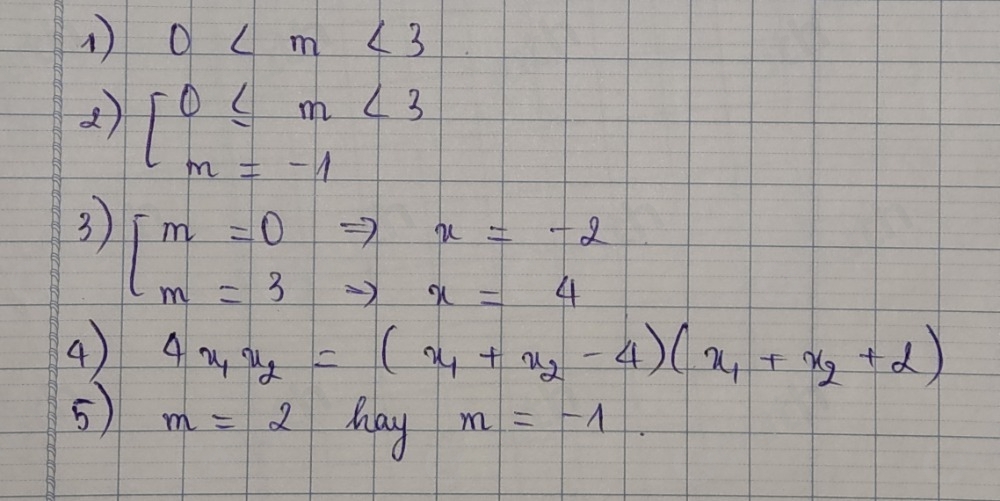 1) 0 < m < 3
2) [ 0 ≤ m < 3
m = -1
3) [ m = 0 => x = -2
m = 3 => x = 4
4) 4x₁x₂ = (x₁ + x₂ - 4)(x₁ + x₂ + 2)
5) m = 2 hay m = -1.